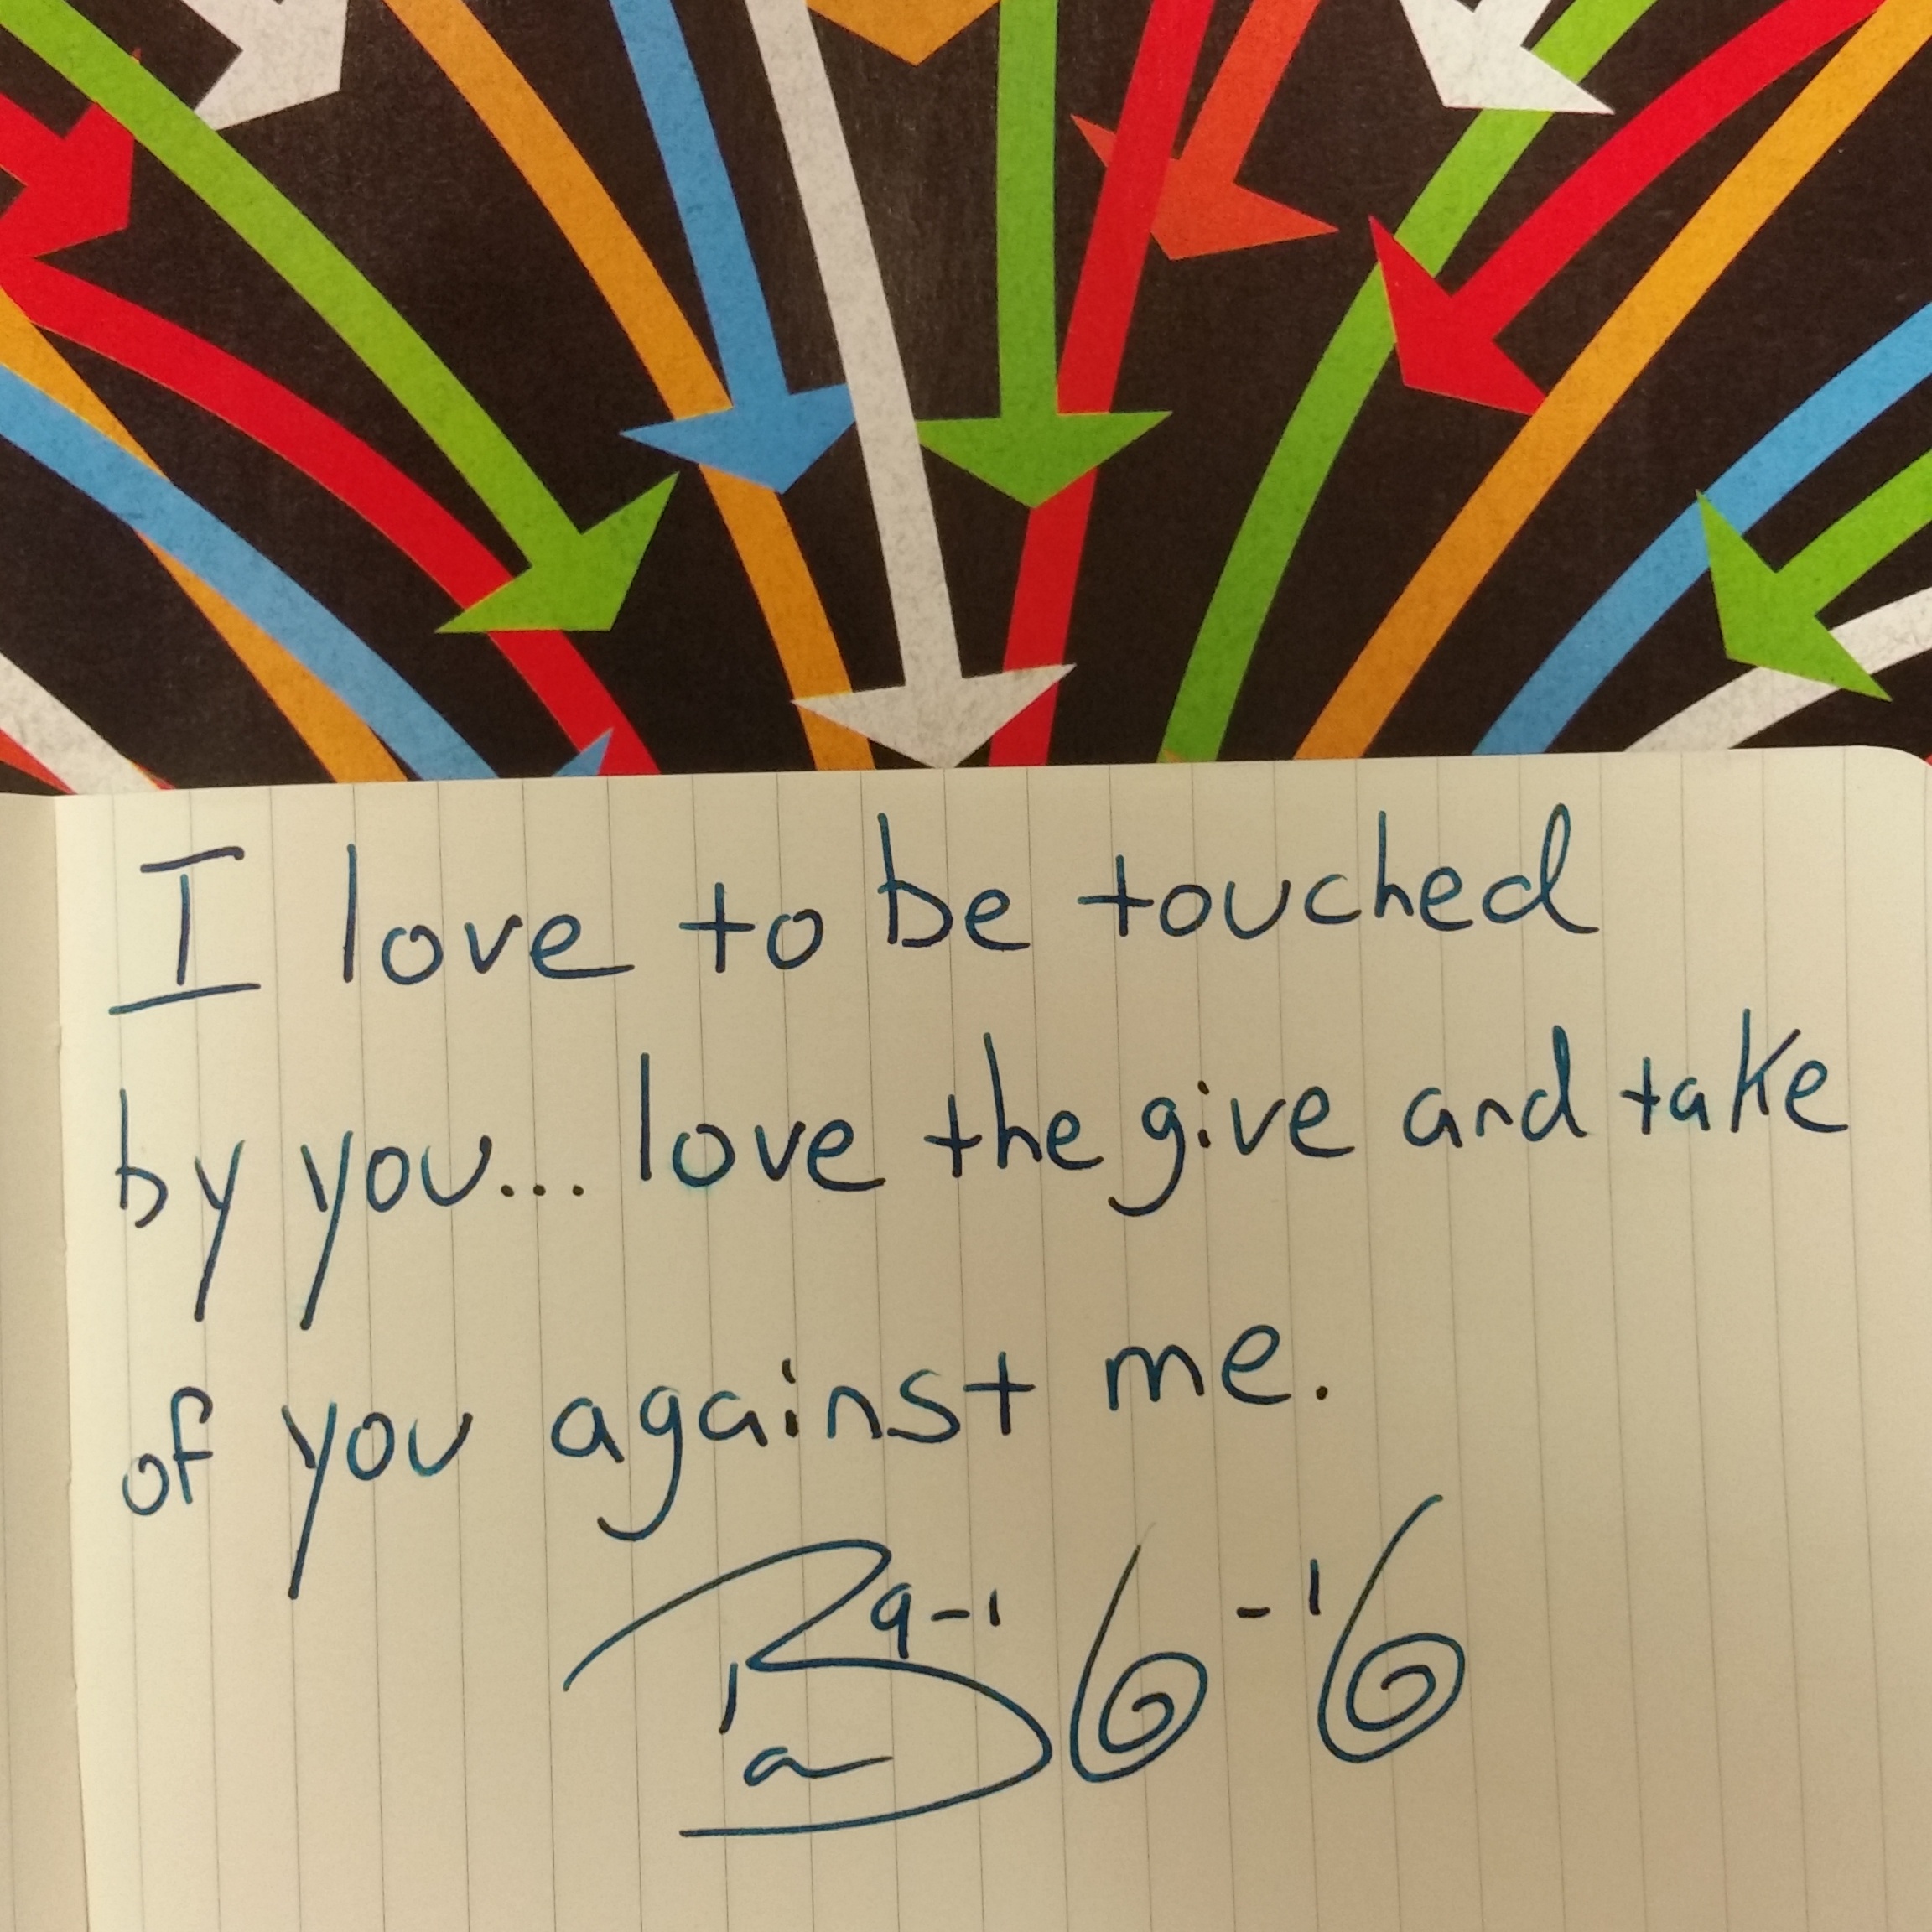 I love to be touched
by you... love the give and take
of you against me.
9-16-16